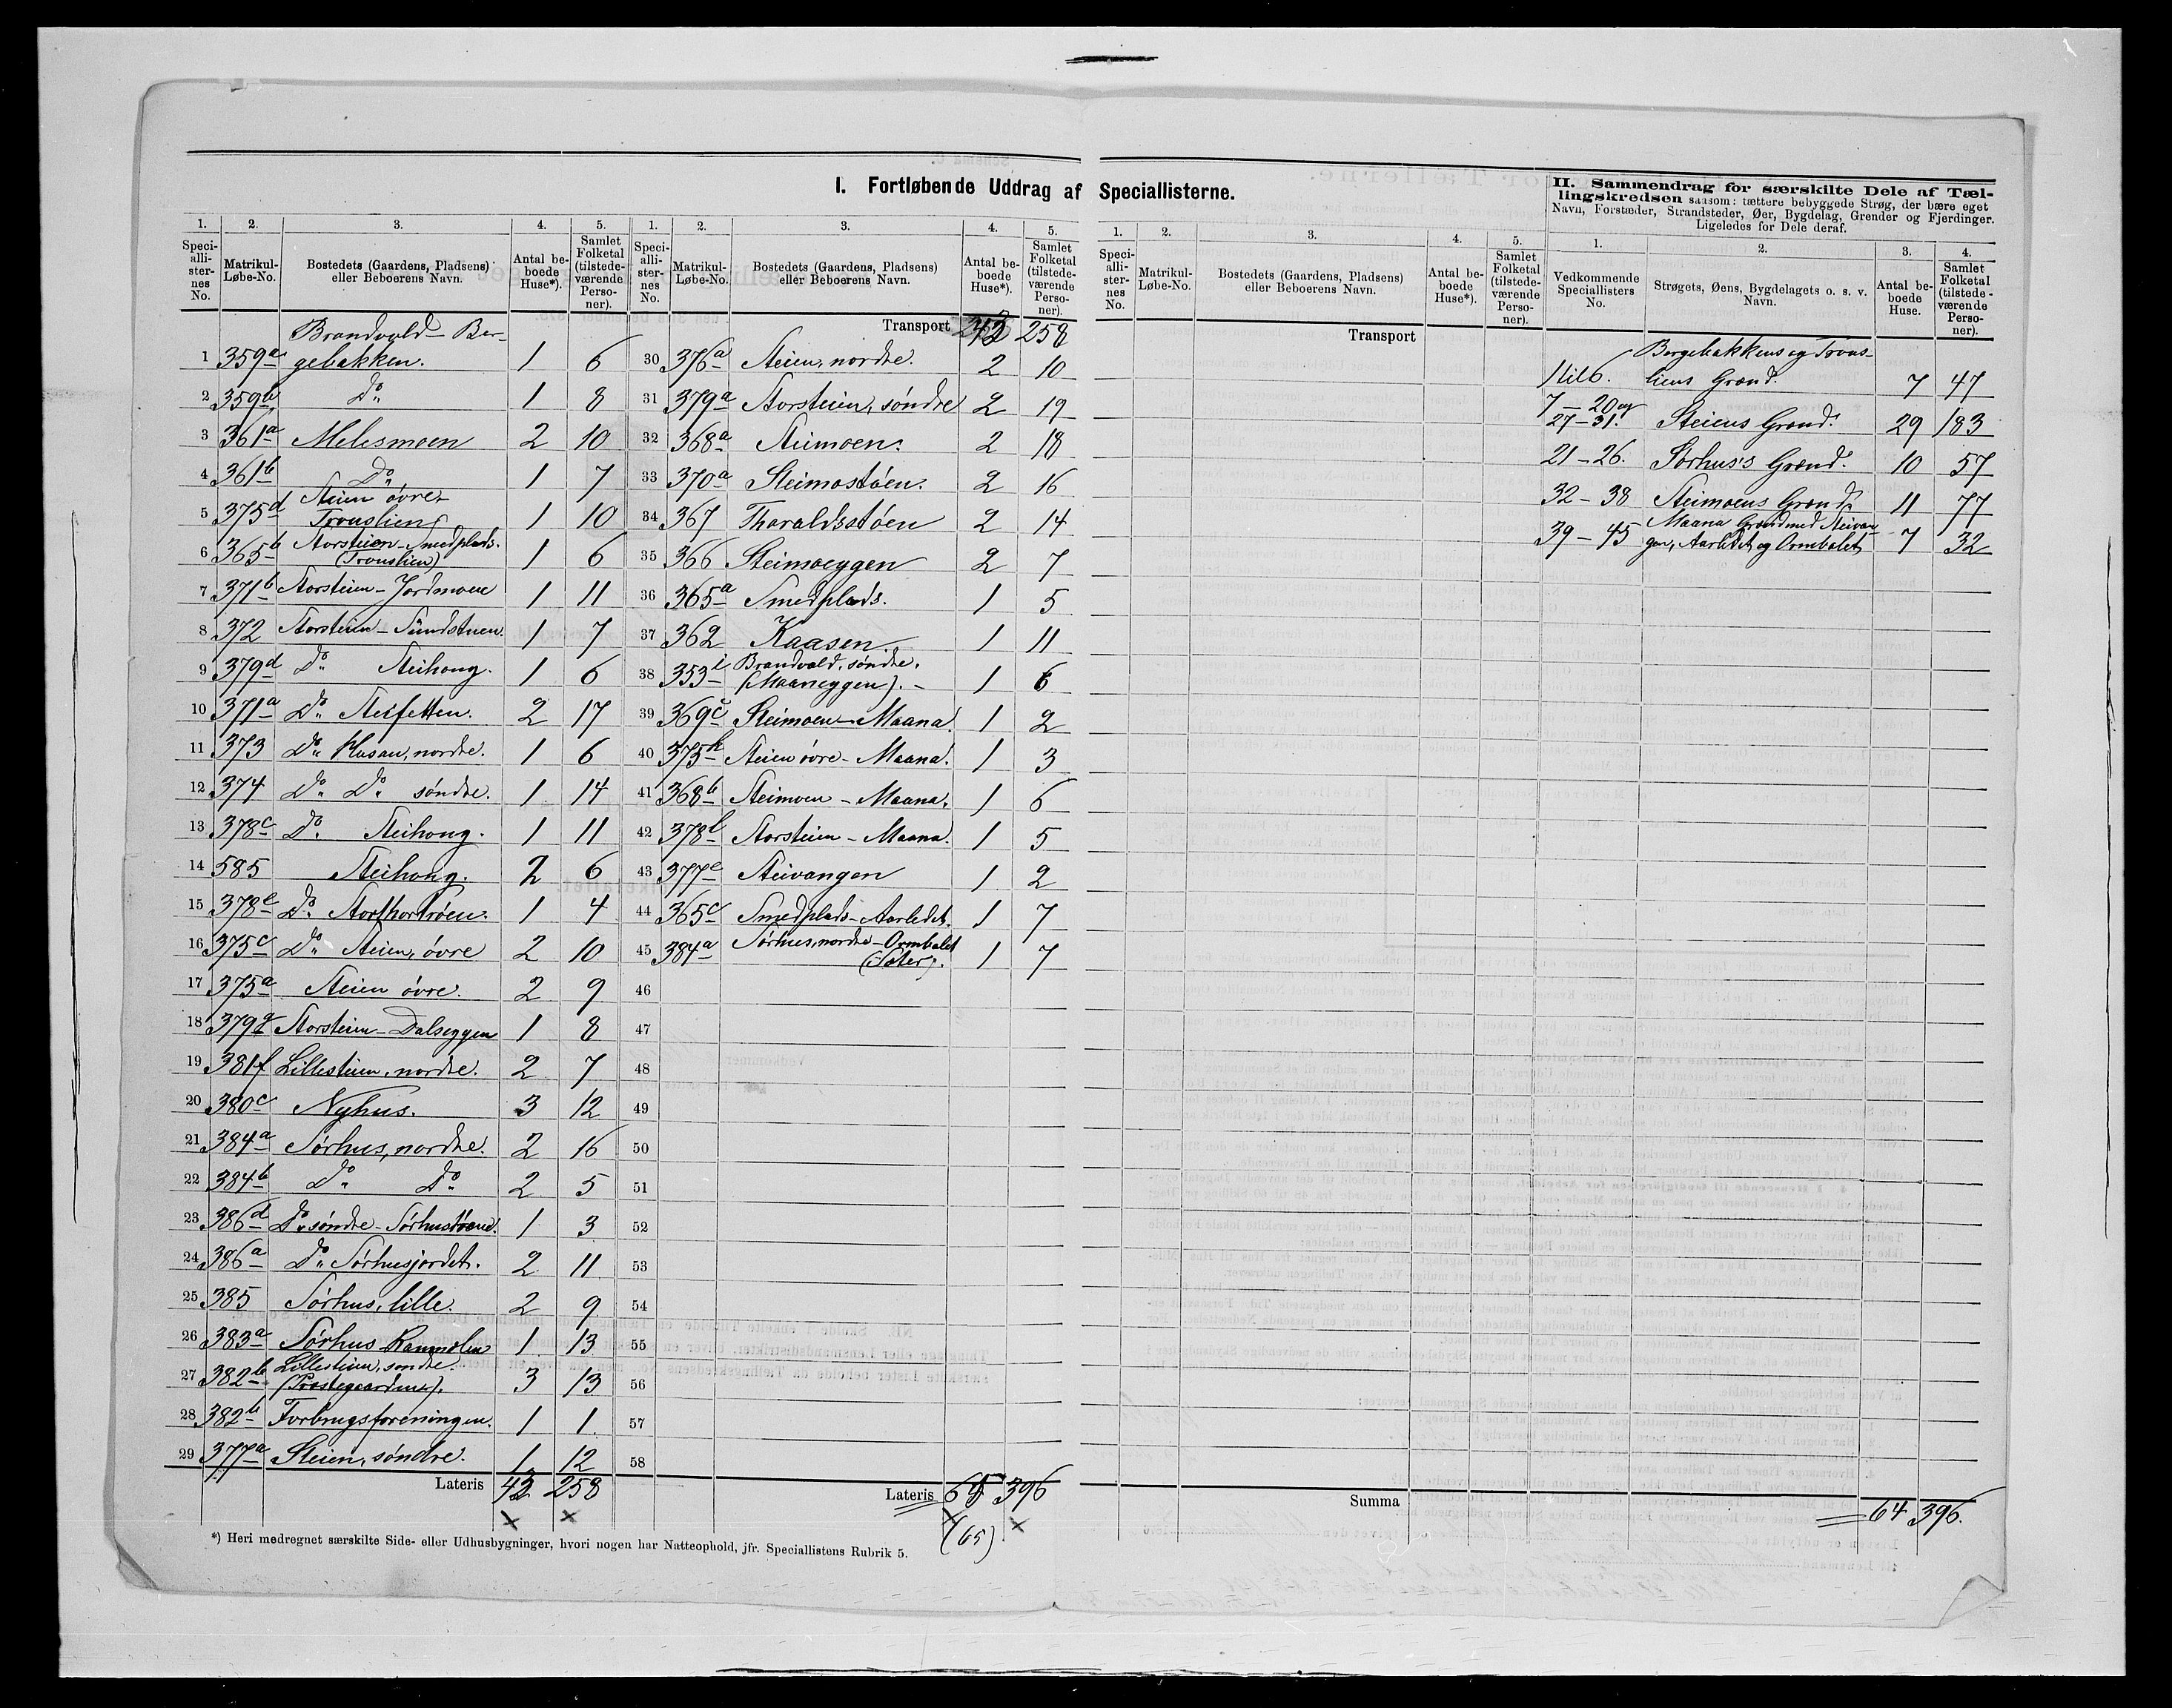 I. Fortløbende Uddrag af Speciallisterne.
1. 2. 3. 4. 5.
Speciallisternes No. Matrikul-Løbe-No. Bostedets (Gaardens, Pladsens) eller Beboerens Navn. Antal beboede Huse*). Samlet Folketal (tilstedeværende Personer).
1 359a Brandvold - Bergebakken. 1 6
2 359b Do 1 8
3 361a Melesmoen 2 10
4 361b Do 1 7
5 375d Steien øvre - Tronslien 1 10
6 365b Storsteien - Smedplads. (Tronslien) 1 6
7 371b Storsteien - Jordmoen 1 11
8 372 Storsteien - Sundstuen. 1 7
9 379d Do Steihong. 1 6
10 371a Do Steifetten. 2 17
11 373 Do Husan, nordre. 1 6
12 374 Do Do søndre. 1 14
13 378c Do Steihong. 1 11
14 585 Steihong. 2 6
15 378e Do Storthortrøen. 1 4
16 375c Do Steien, øvre 2 10
17 375a Steien øvre. 2 9
18 379g Storsteien - Dalseggen 1 8
19 381f Lillesteien, nordre. 2 7
20 380c Nyhus. 3 12
21 384a Sørhus, nordre. 2 16
22 384b Do Do 2 5
23 386d Do søndre - Sørhustøene. 1 3
24 386a Do Sørhusjordet. 2 11
25 385 Sørhus, lille. 2 9
26 383a Sørhus Rammelen 1 13
27 382b Lillesteien, søndre. (Prestegaarden). 3 13
28 382b Forbrugsforeningen. 1 1
29 377a Steien, søndre. 1 12
Lateris 43 258
*) Heri medregnet særskilte Side- eller Udhusbygninger, hvori nogen har Natteophold, jfr. Speciallistens Rubrik 5.
1. 2. 3. 4. 5.
Speciallisternes No. Matrikul-Løbe-No. Bostedets (Gaardens, Pladsens) eller Beboerens Navn. Antal beboede Huse*). Samlet Folketal (tilstedeværende Personer).
Transport 43 258
30 376a Steien, nordre. 2 10
31 379a Storsteien, søndre 2 19
32 368a Steimoen. 2 18
33 370a Steimostøen. 2 16
34 367 Tharaldsstøen 2 14
35 366 Steimoeggen 2 7
36 365a Smedplads. 1 5
37 362 Kaasen. 1 11
38 353i Brandvold, søndre. (Maaneggen). 1 6
39 369c Steimoen - Maana. 1 2
40 375h Steien øvre - Maana. 1 3
41 368b Steimoen - Maana. 1 6
42 378l Storsteien - Maana. 1 5
43 377e Steivangen 1 2
44 365c Smedplads - Aarledet. 1 7
45 384a Sørhus, nordre - Ormbalet (Sæter). 1 7
46
47
48
49
50
51
52
53
54
55
56
57
58
Lateris 65 396
(65)
1. 2. 3. 4. 5.
Speciallisternes No. Matrikul-Løbe-No. Bostedets (Gaardens, Pladsens) eller Beboerens Navn. Antal beboede Huse*). Samlet Folketal (tilstedeværende Personer).
Transport
Summa
II. Sammendrag for særskilte Dele af Tællingskredsen saasom: tættere bebyggede Strøg, der bære eget Navn, Forstæder, Strandsteder, Øer, Bygdelag, Grender og Fjerdinger. Ligeledes for Dele deraf.
1. 2. 3. 4.
Vedkommende Speciallisters No. Strøgets, Øens, Bygdelagets o. s. v. Navn. Antal beboede Huse. Samlet Folketal (tilstedeværende Personer).
1 til 6. Bergebakkens og Tronsliens Grænd. 7 47
7 - 20 og 27 - 31. Steiens Grænd. 29 183
21 - 26. Sørhus's Grænd. 10 57
32 - 38 Steimoens Grænd 11 77
39 - 45 Maana Grænd med Steivangen, Aarledet og Ormbalet 7 32
64 396.